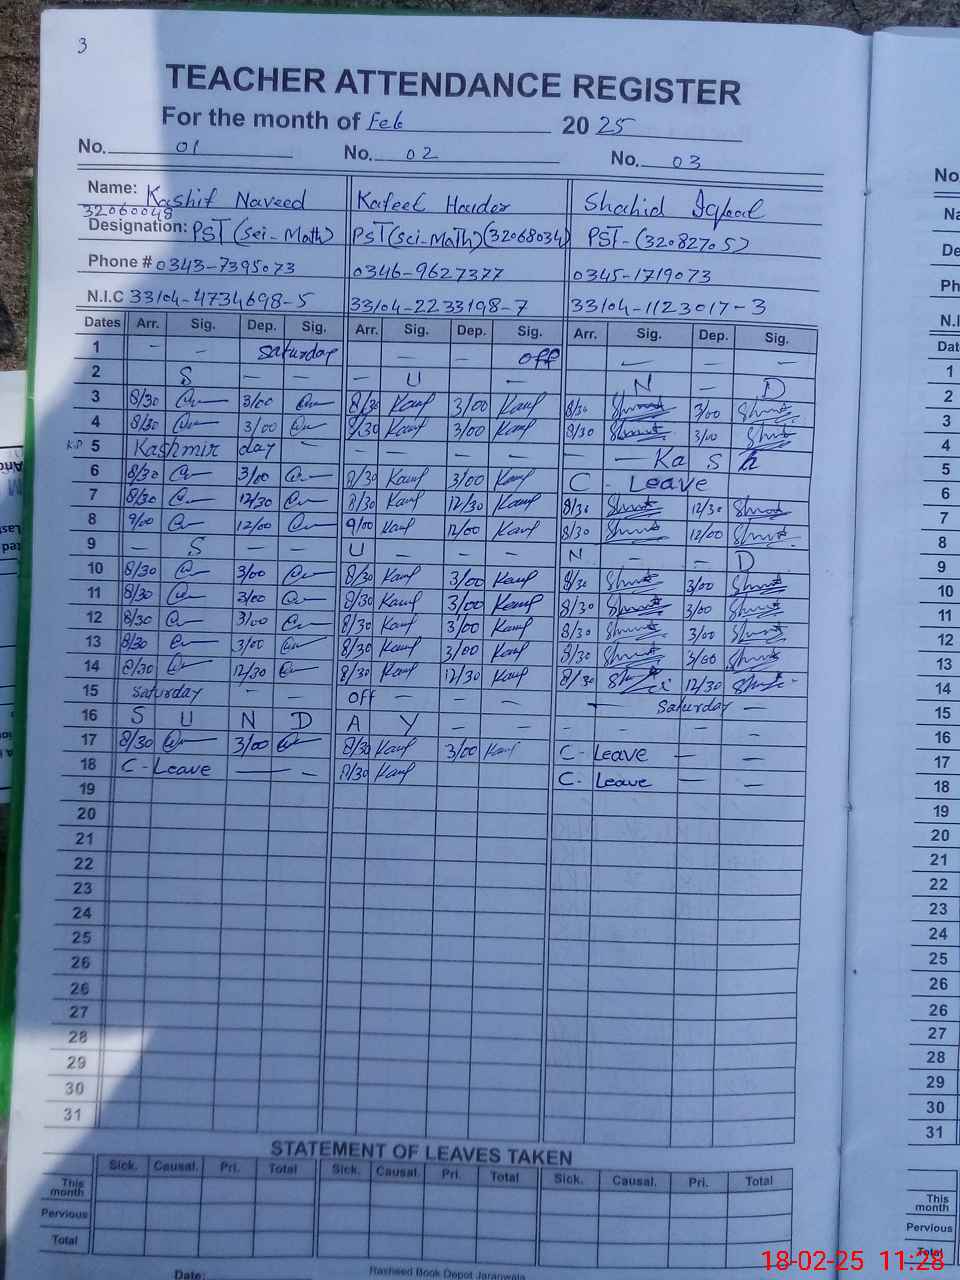 3
TEACHER ATTENDANCE REGISTER
For the month of Feb 20 25
No. 01 No. 02 No. 03
Name: Kashif Naveed Kafeel Haider Shahid Iqbal
32060048
Designation: PST (sci-Math) PST (sci-Math) (32068034) PST- (32082705)
Phone # 0343-7395073 0346-9627377 0345-1719073
N.I.C 33104-4734698-5 33104-2233198-7 33104-1123017-3
Dates Arr. Sig. Dep. Sig. Arr. Sig. Dep. Sig. Arr. Sig. Dep. Sig.
1 - - Saturday - - off - - -
2 S - - - U - N - D
3 8/30 3/00 8/30 Kauf 3/00 Kauf 8/30 3/00
4 8/30 3/00 8/30 Kauf 3/00 Kauf 8/30 3/00
K.D 5 Kashmir day - - - - - - - Ka s h
6 8/30 3/00 8/30 Kauf 3/00 Kauf C - Leave
7 8/30 12/30 8/30 Kauf 12/30 Kauf 8/30 12/30
8 9/00 12/00 9/00 Kauf 12/00 Kauf 8/30 12/00
9 - S - - U - - - N - - D
10 8/30 3/00 8/30 Kauf 3/00 Kauf 8/30 3/00
11 8/30 3/00 8/30 Kauf 3/00 Kauf 8/30 3/00
12 8/30 3/00 8/30 Kauf 3/00 Kauf 8/30 3/00
13 8/30 3/00 8/30 Kauf 3/00 Kauf 8/30 3/00
14 8/30 12/30 8/30 Kauf 12/30 Kauf 8/30 12/30
15 Saturday - - off - - - - Saturday -
16 S U N D A Y - - - - - -
17 8/30 3/00 8/30 Kauf 3/00 Kauf C - Leave - -
18 C - Leave - - 8/30 Kauf C - Leave - -
19
20
21
22
23
24
25
26
26
27
28
29
30
31
STATEMENT OF LEAVES TAKEN
Sick. Causal. Pri. Total Sick. Causal. Pri. Total Sick. Causal. Pri. Total
This month
Pervious
Total
Date:
Rasheed Book Depot Jaranwala
No
Na
De
Ph
N.I
Dat
1
2
3
4
5
6
7
8
9
10
11
12
13
14
15
16
17
18
19
20
21
22
23
24
25
26
26
27
28
29
30
31
This month
Pervious
Total
18-02-25 11:28